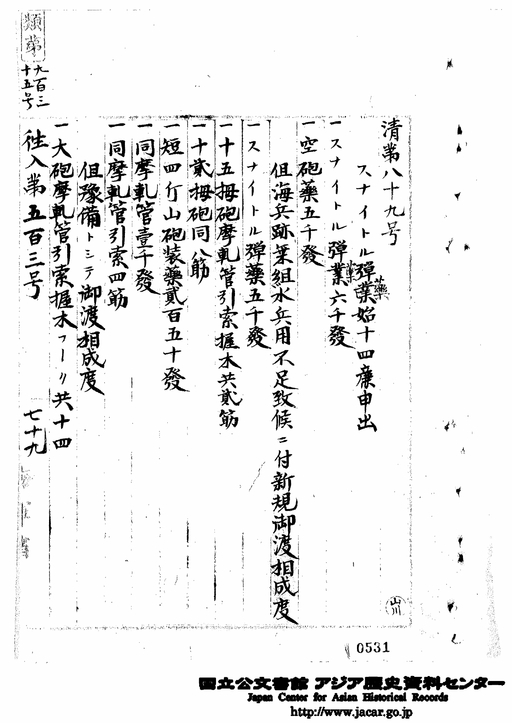 清第八十九号
スナイトル弾薬始十四廉申出
一スナイトル弾薬六千發
一空砲藥五千發
但海兵跡業組水兵用不足致候ニ付新規御渡相成度
一スナイトル彈藥五千發
一十五拇砲摩軋管引索握木共貳筋
一十貳拇砲同八筋
一短四斤山砲装藥貳百五十發
一同摩軋管壹千發
一同摩軋管引索四筋
但豫備トシテ御渡相成度
一大砲摩軋管引索握木共十四
往入第五百三号
七十九
類第
九百三
十五号
山川
0531
国立公文書館 アジア歴史資料センター
Japan Center for Asian Historical Records
http://www.jacar.go.jp